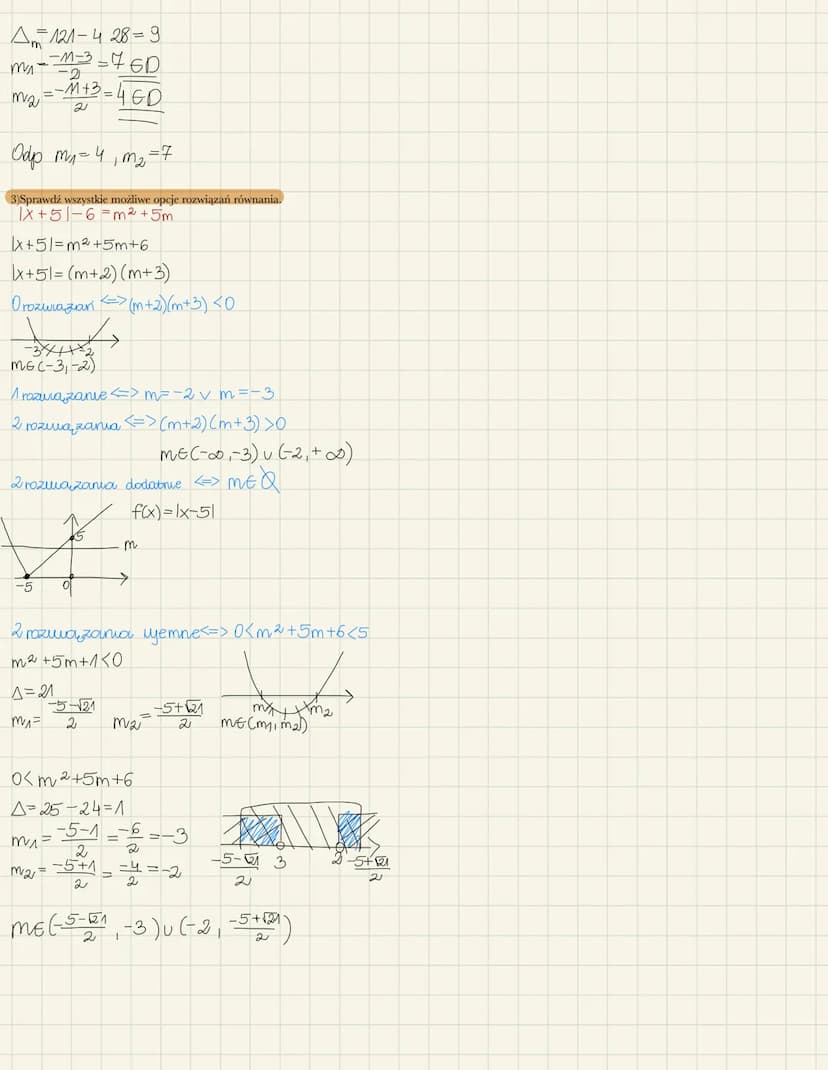 Δm = 121 - 4 28 = 9
m1 = -11-3/-2 = 7 ∈D
m2 = -11+3/2 = 4 ∈D
Odp m1 = 4, m2 = 7
3)Sprawdź wszystkie możliwe opcje rozwiązań równania.
|x+5|-6 = m²+5m
|x+5| = m²+5m+6
|x+5| = (m+2)(m+3)
0 rozwiązań <=> (m+2)(m+3) <0
-3 -2
m∈(-3,-2)
1 rozwiązanie <=> m=-2 ∨ m=-3
2 rozwiązania <=> (m+2)(m+3) >0
m∈(-∞,-3)∪(-2,+∞)
2 rozwiązania dodatnie <=> m∈∅
f(x)=|x-5|
5
m
-5 0
2 rozwiązania ujemne <=> 0<m²+5m+6<5
m²+5m+1<0
Δ=21
m1 = -5-√21/2 m2 = -5+√21/2
m1 m2
m∈(m1, m2)
0<m²+5m+6
Δ=25-24=1
m1 = -5-1/2 = -6/2 = -3
m2 = -5+1/2 = -4/2 = -2
-5-√21/2 3 2 -5+√21/2
m∈(-5-√21/2, -3)∪(-2, -5+√21/2)